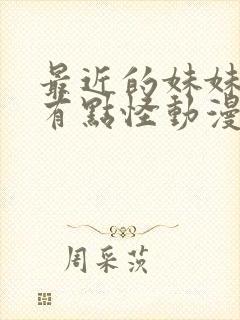 最近的妹妹
有點怪動漫
周采茨